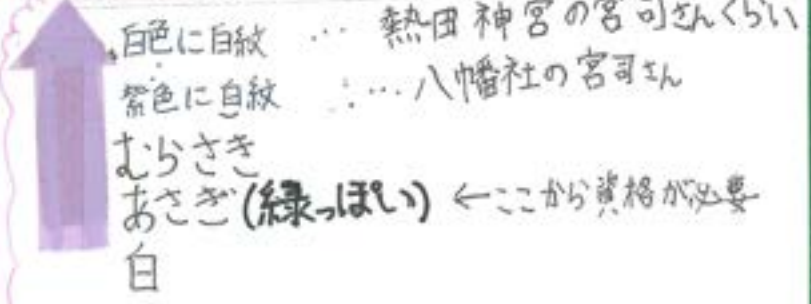 白色に白紋 … 熱田神宮の宮司さんくらい
紫色に白紋 … 八幡社の宮司さん
むらさき
あさぎ(緑っぽい) ←ここから資格が必要
白